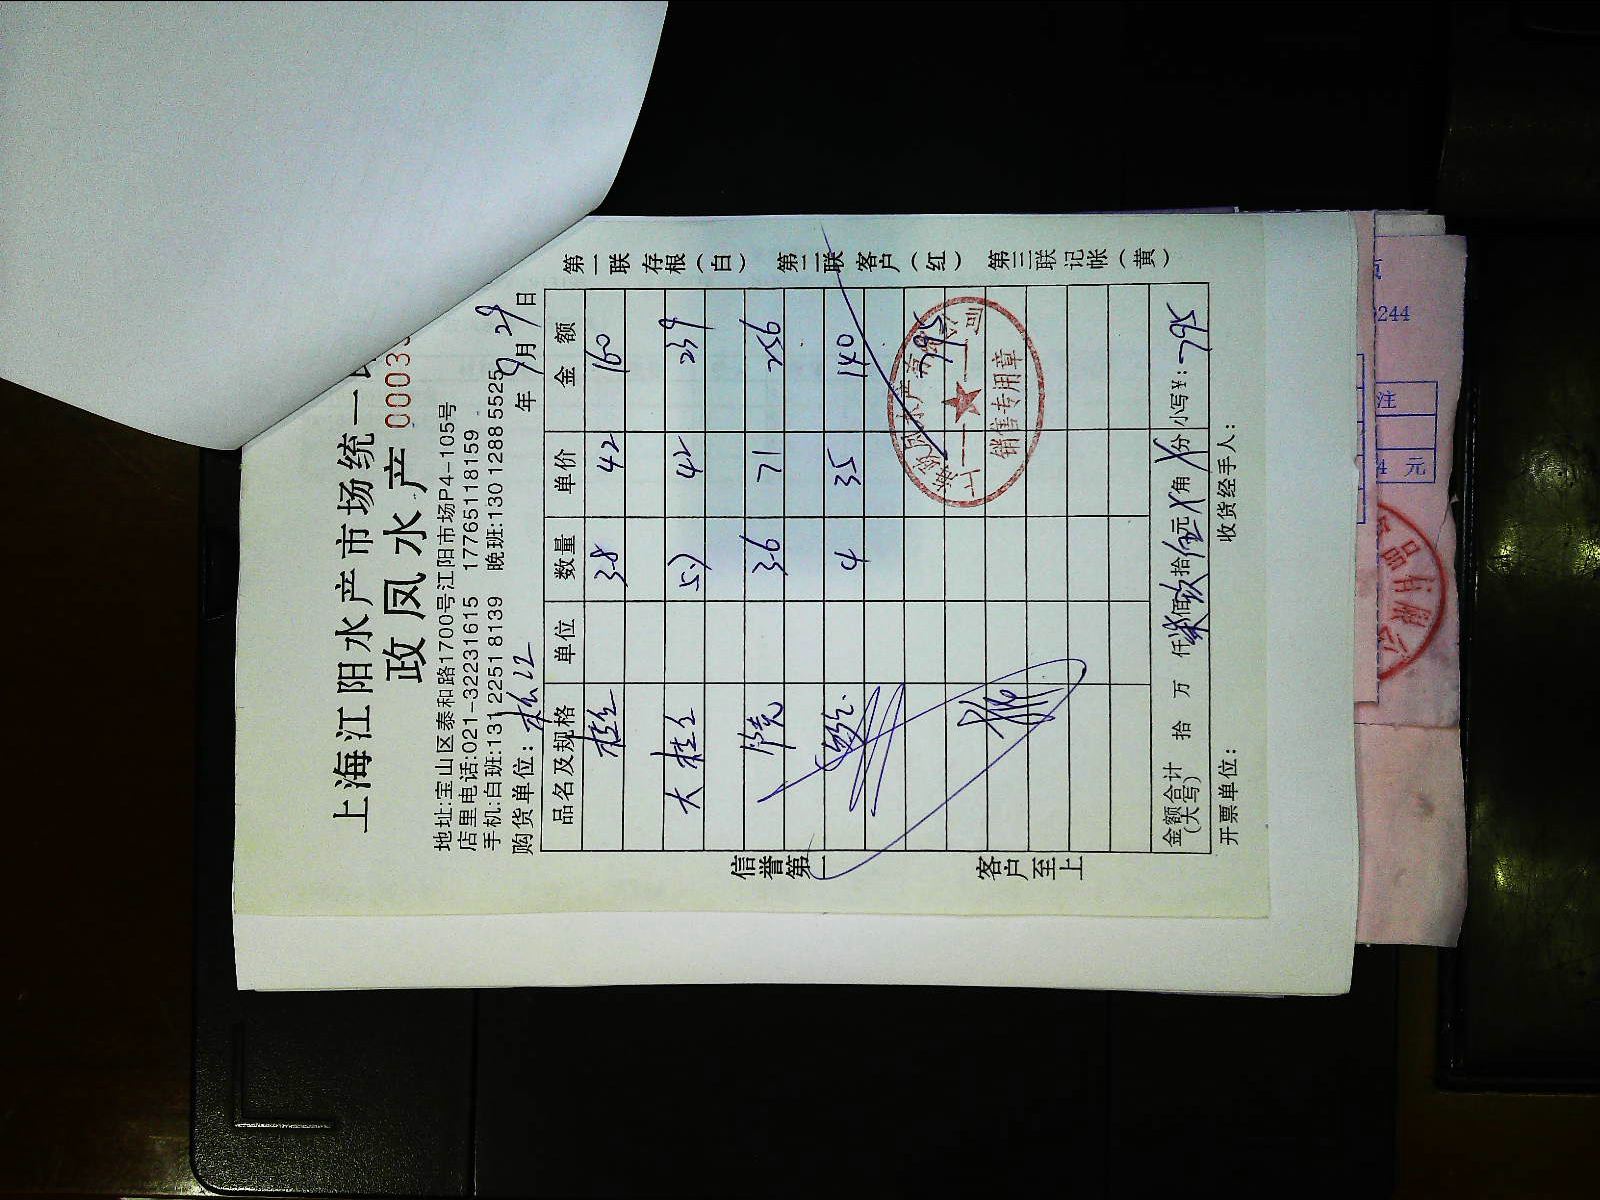 上海江阳水产市场统一
政凤水产 0003
地址:宝山区泰和路1700号江阳市场P4-105号
店里电话:021-32231615 17765118159
手机:白班:131 2251 8139 晚班:130 1288 5525
购货单位: 年 9月29日
品名及规格 单位 数量 单价 金额
3.8 42 160
大 5.7 42 239
3.6 71 256
4 35 140
795
金额合计(大写) 拾 万 仟柒佰玖拾伍元X角X分 小写¥:795
开票单位: 收货经手人:
信誉第一
客户至上
第一联存根(白) 第二联客户(红) 第三联记帐(黄)
上海政凤水产商 公司
销售专用章
0244
注
4 元
品有限公